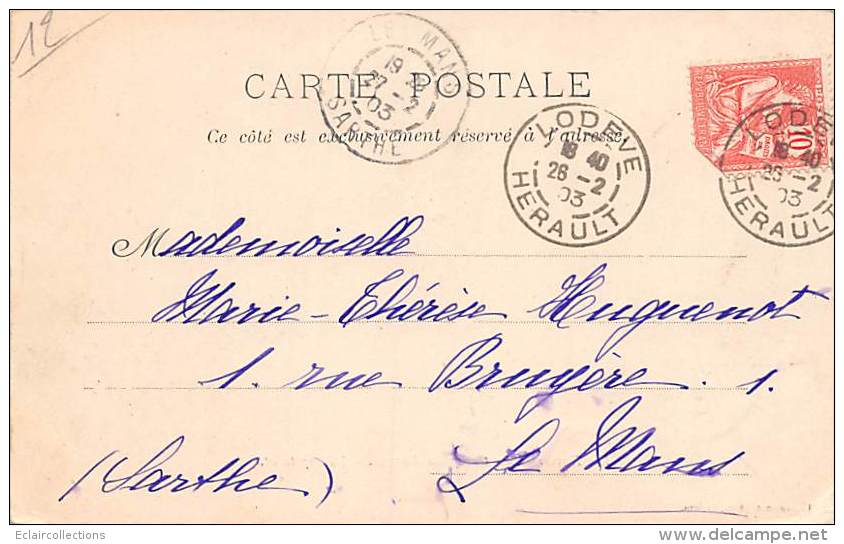 12
CARTE POSTALE
Ce côté est exclusivement réservé à l'adresse.
LE MANS
19
27 - 2
03
SARTHE
LODEVE
16 40
26 - 2
03
HERAULT
10
LODEVE
16 40
26 - 2
03
HERAULT
Mademoiselle
Marie-Thérèse Huguenot
1. rue Bruyère. 1.
Le Mans
(Sarthe)
Eclaircollections
delcampe.net